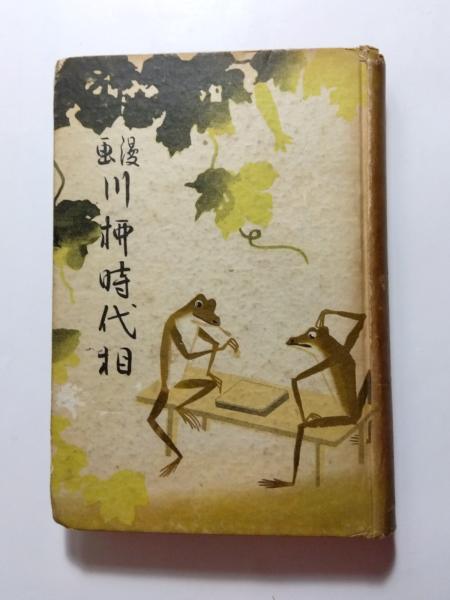 漫画
川柳時代相